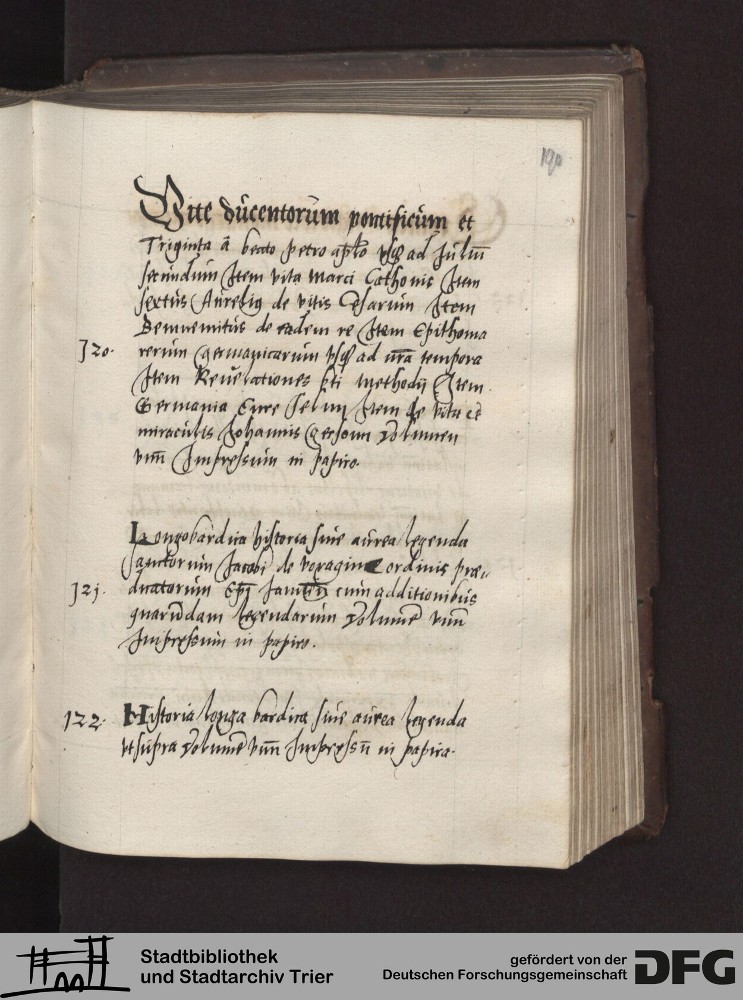 190
Vite ducentorum pontificum et
Triginta a beato petro aplo usq ad Juliu
secundum Item vita Marci Cathonis Item
sextus Aurelius de vitis Cesarum Item
Benuenutus de eadem re Item Epithoma
120. rerum germanicarum usq ad nra tempora
Item Reuelationes sti Methodij Item
Germania Enee Item de vita et
miraculis Johannis Gerson volumen
vnu Impressum in papiro.
Longobardica historia siue aurea legenda
sanctorum Jacobi de voragine ordinis præ-
121. dicatorum Epi Januen cum additionibus
quarundam legendarum volume vnu
Impressum in papiro.
122. Historia longa bardica siue aurea legenda
vt supra volume vnu Impressu in papiro.
Stadtbibliothek
und Stadtarchiv Trier
gefördert von der
Deutschen Forschungsgemeinschaft
DFG